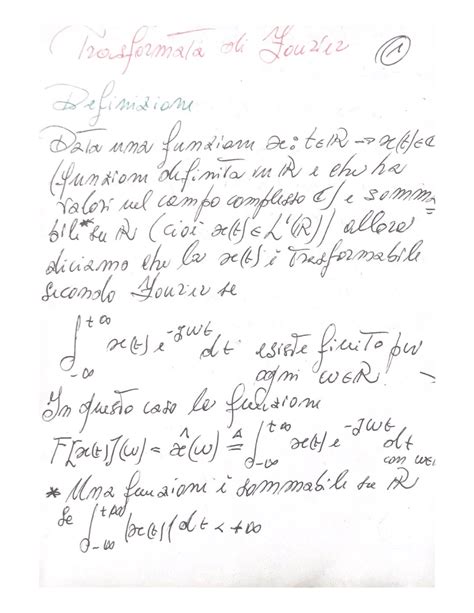 Trasformata di Fourier ①
Definizione
Data una funzione x: t∈ℝ → x(t)∈ℂ
(funzione definita in ℝ e che ha
valori nel campo complesso ℂ) e somma=
bile* su ℝ (cioè x(t)∈L¹(ℝ)) allora
diciamo che la x(t) è Trasformabile
secondo Fourier se
∫_{-∞}^{+∞} x(t) e^{-jωt} dt esiste finito per
ogni ω∈ℝ.
In questo caso la funzione
F[x(t)](ω) = x̂(ω) ≜ ∫_{-∞}^{+∞} x(t) e^{-jωt} dt
con ω∈
* Una funzione è sommabile su ℝ
se ∫_{-∞}^{+∞} |x(t)| dt < +∞